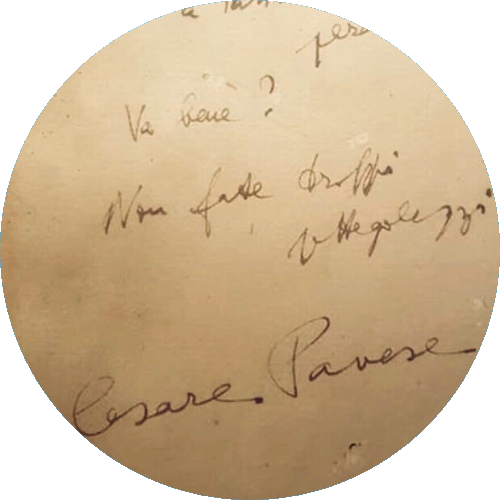 Va bene?
Non fate troppi
pettegolezzi
Cesare Pavese